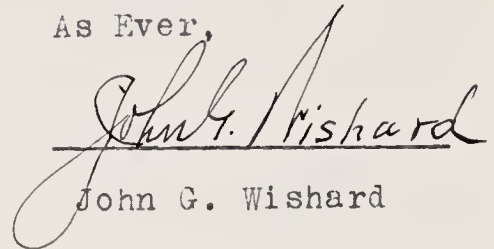 As Ever,
John G. Wishard
John G. Wishard